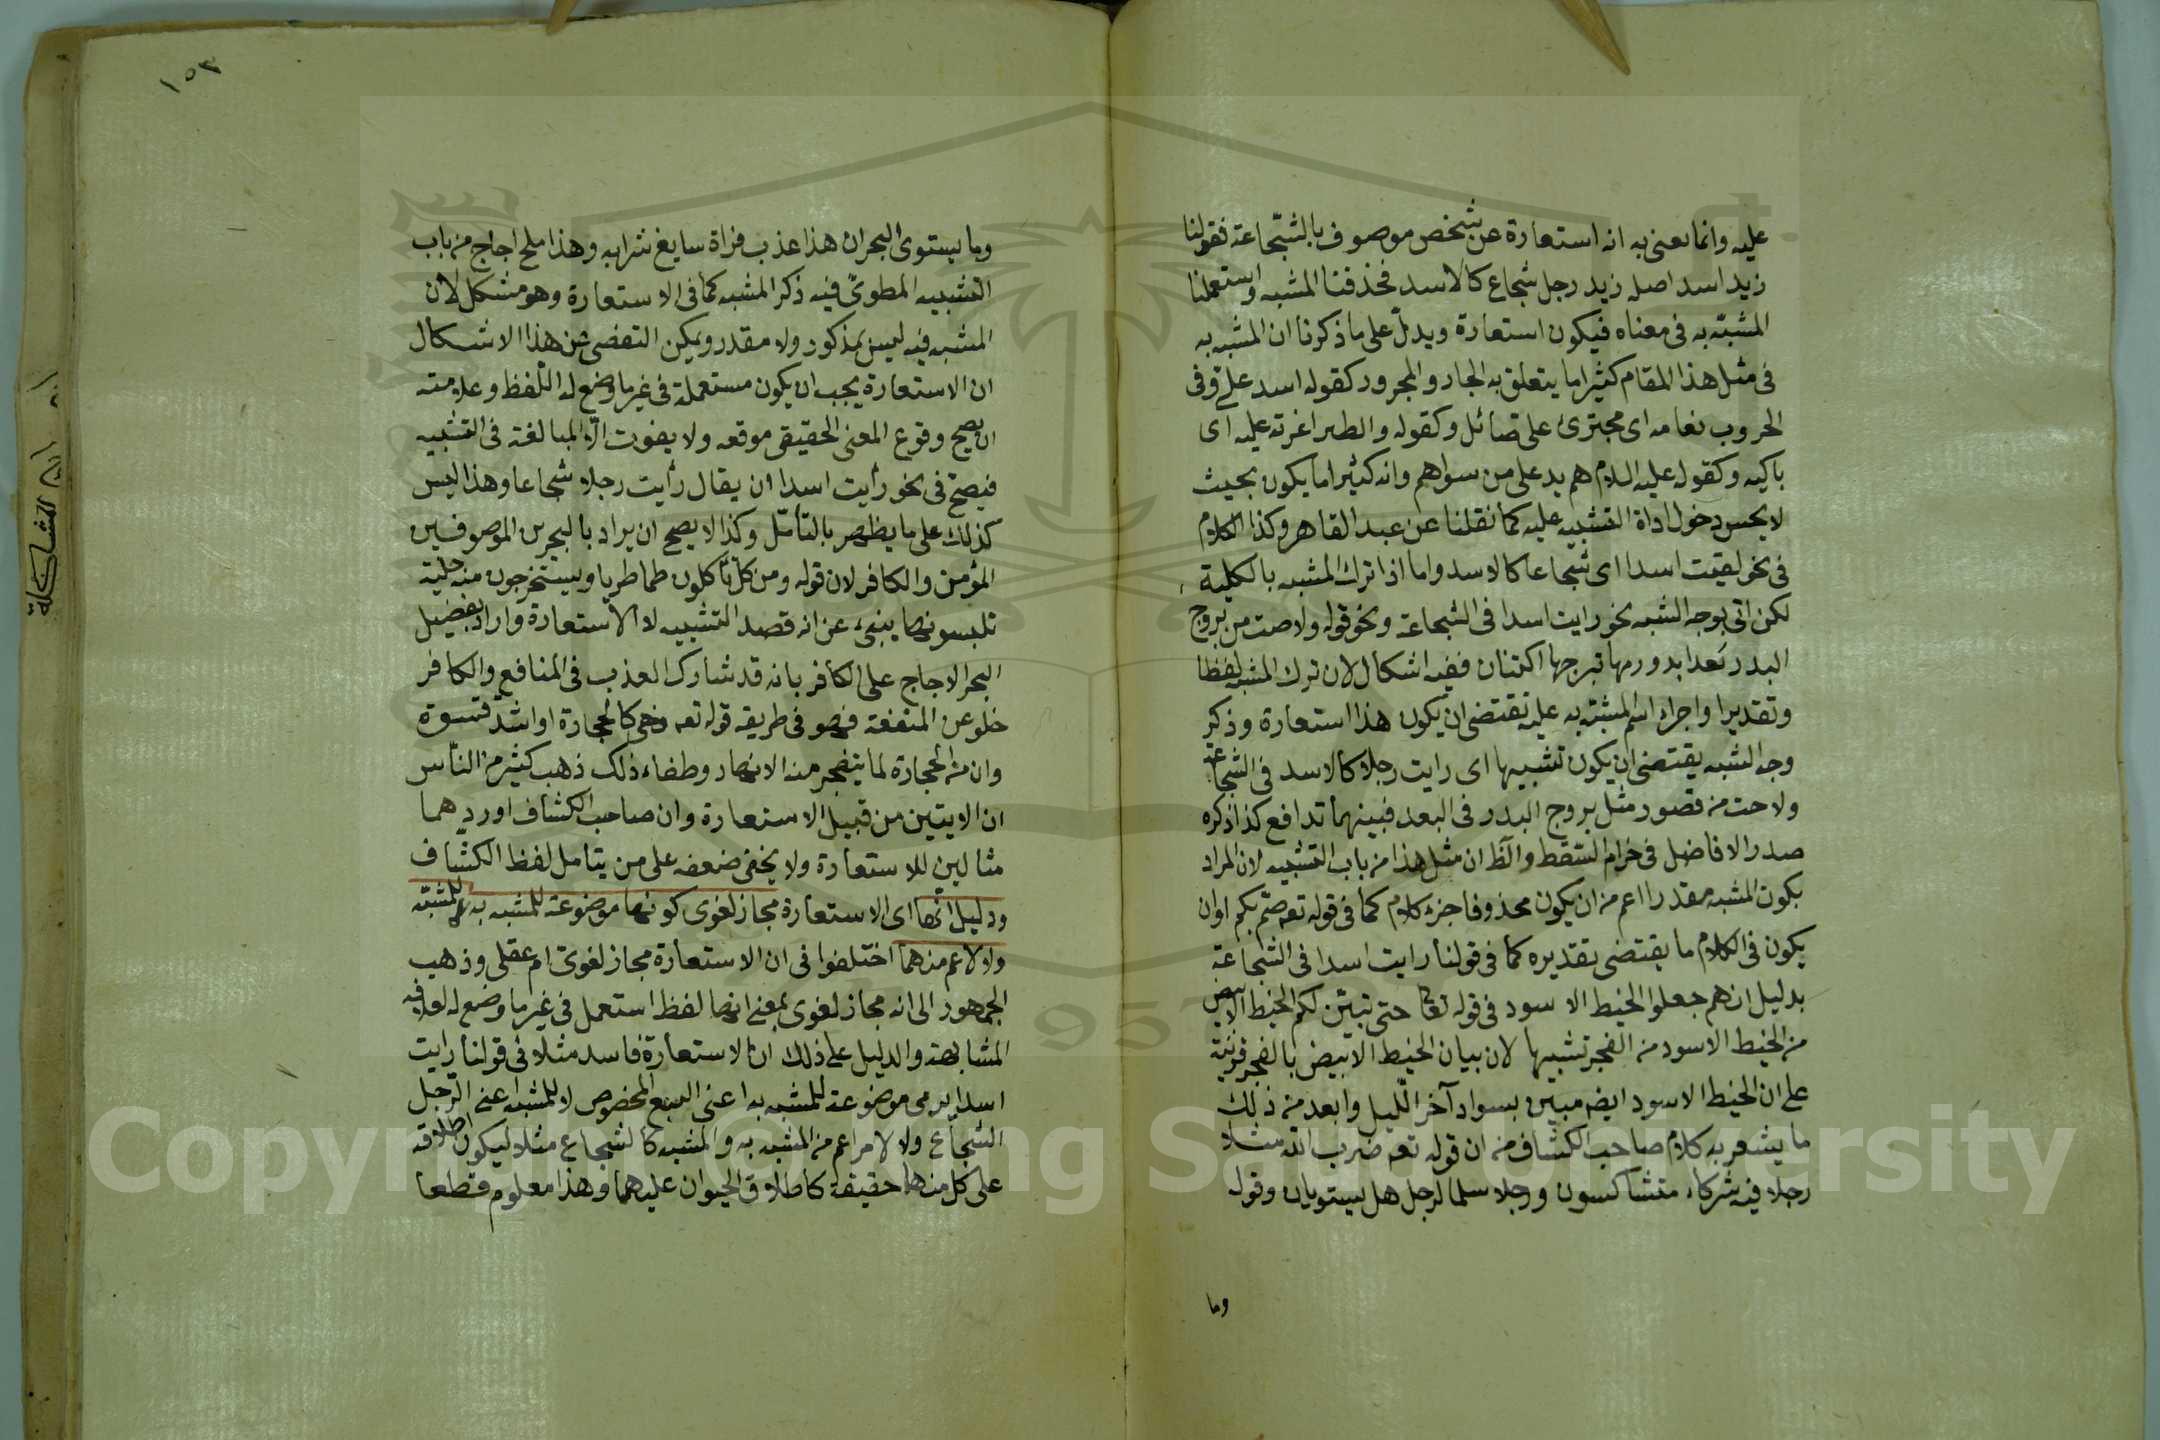 عليه وانما نعنى به انه استعارة عن شخص موصوف بالشجاعة فقولنا
زيد اسد اصله زيد رجل شجاع كالاسد فحذفنا المشبه واستعملنا
المشبه به فى معناه فيكون استعارة ويدل على ما ذكرنا ان المشبه به
فى مثل هذا المقام كثيرا ما يتعلق به الجار والمجرور كقوله اسد على وفى
الحروب نعامه اى مجترئ على صائل وكقوله والطير اغربة عليه اى
باكيه وكقوله عليه السلام هم يد على من سواهم وانه كثيرا ما يكون بحيث
لا يحسن دخول اداة التشبيه عليه كما نقلنا عن عبد القاهر وكذا الكلام
فى نحو لقيت اسدا اى شجاعا كالاسد واما اذا ترك المشبه بالكلية
لكن اتى بوجه الشبه نحو رايت اسدا فى الشجاعة ونحو قوله ولاحت من بروج
البدر بعدا بدور مها تبرجها اكتنان ففيه اشكال لان ترك المشبه لفظا
وتقديرا واجراء اسم المشبه به عليه تقتضى ان يكون هذا استعارة وذكر
وجه الشبه يقتضى ان يكون تشبيها اى رايت رجلا كالاسد فى الشجاعة
ولاحت من قصور مثل بروج البدر فى البعد فبينهما تدافع كذا ذكره
صدر الافاضل فى ضرام السقط والظ ان مثل هذا من باب التشبيه لان المراد
بكون المشبه مقدرا اعم من ان يكون محذوفا جزء كلام كما فى قوله تعه صم بكم او ان
يكون فى الكلام ما يقتضى تقديره كما فى قولنا رايت اسدا فى الشجاعة
بدليل انهم جعلوا الخيط الاسود فى قوله تعا حتى يتبين لكم الخيط الابيض
من الخيط الاسود من الفجر تشبيها لان بيان الخيط الابيض بالفجر قرينة
على ان الخيط الاسود ايضه مبين بسواد آخر الليل وابعد من ذلك
ما يشعر به كلام صاحب الكشاف من ان قوله تعه ضرب الله مثلا
رجلا فيه شركاء متشاكسون ورجلا سلما لرجل هل يستويان وقوله
وما
١٥٣
وما يستوى البحران هذا عذب فرات سايغ شرابه وهذا ملح اجاج من باب
التشبيه المطوى فيه ذكر المشبه كما فى الاستعارة وهو مشكل لان
المشبه فيه ليس بمذكور ولا مقدر ويمكن التفصى عن هذا الاشكال
ان الاستعارة يجب ان يكون مستعملة فى غير ما وضع له اللفظ وعلامته
ان يصح وقوع المعنى الحقيقى موقعه ولا يفوت الا المبالغة فى التشبيه
فيصح فى نحو رأيت اسدا ان يقال رأيت رجلا شجاعا وهذا ليس
كذلك على ما يظهر بالتأمل وكذا لا يصح ان يراد بالبحرين الموصوفين
المؤمن والكافر لان قوله ومن كل تأكلون طما طريا ويستخرجون منه حلية
تلبسونها ينبئ عن انه قصد التشبيه لا الاستعارة واراد تفضيل
البحر الاجاج على الكافر بانه قد شارك العذب فى المنافع والكافر
خلو عن المنفعة فهو فى طريقه قوله تعه وهى كالحجارة او اشد قسوة
وان من الحجارة لما يتفجر منه الانهار وطفاء ذلك ذهب كثير من الناس
ان الايتين من قبيل الاستعارة وان صاحب الكشاف اوردهما
مثالين للاستعارة ولا يخفى ضعفه على من يتامل لفظ الكشاف
ودليل انها اى الاستعارة مجاز لغوى كونها موضوعة للمشبه به لا للمشبه
ولا لاعم منهما اختلفوا فى ان الاستعارة مجاز لغوى ام عقلى وذهب
الجمهور الى انه مجاز لغوى بمعنى انها لفظ استعمل فى غير ما وضع له لعلاقه
المشابهة والدليل على ذلك ان الاستعارة فاسد مثلا فى قولنا رايت
اسدا يرمى موضوعة للمشبه به اعنى السبع المخصوص لا للمشبه اعنى الرجل
الشجاع ولا لامر اعم من المشبه به والمشبه كالشجاع مثلا ليكون اطلاقه
على كل منهما حقيقة كاطلاق الحيوان عليهما وهذا معلوم قطعا
Copyright © King Saud University